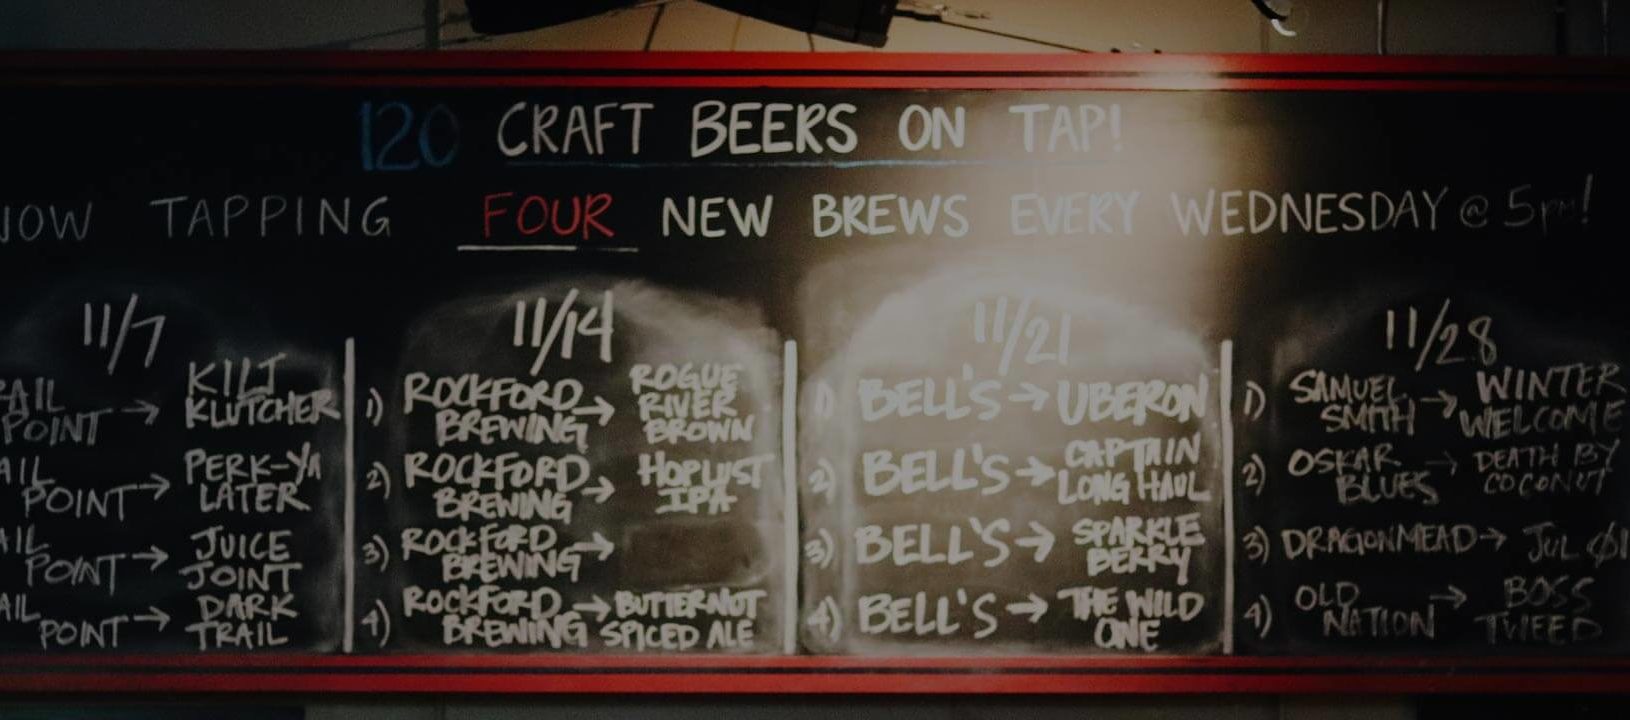 120 CRAFT BEERS ON TAP!
NOW TAPPING FOUR NEW BREWS EVERY WEDNESDAY @ 5pm!
11/7
AIL POINT → KILT KLUTCHER
AIL POINT → PERK-YA LATER
AIL POINT → JUICE JOINT
AIL POINT → DARK TRAIL
11/14
1) ROCKFORD BREWING → ROGUE RIVER BROWN
2) ROCKFORD BREWING → HOPLUST IPA
3) ROCKFORD BREWING →
4) ROCKFORD BREWING → BUTTERNUT SPICED ALE
11/21
1) BELL'S → UBERON
2) BELL'S → CAPTAIN LONG HAUL
3) BELL'S → SPARKLE BERRY
4) BELL'S → THE WILD ONE
11/28
1) SAMUEL SMITH → WINTER WELCOME
2) OSKAR BLUES → DEATH BY COCONUT
3) DRAGONMEAD → JUL
4) OLD NATION → BOSS TWEED